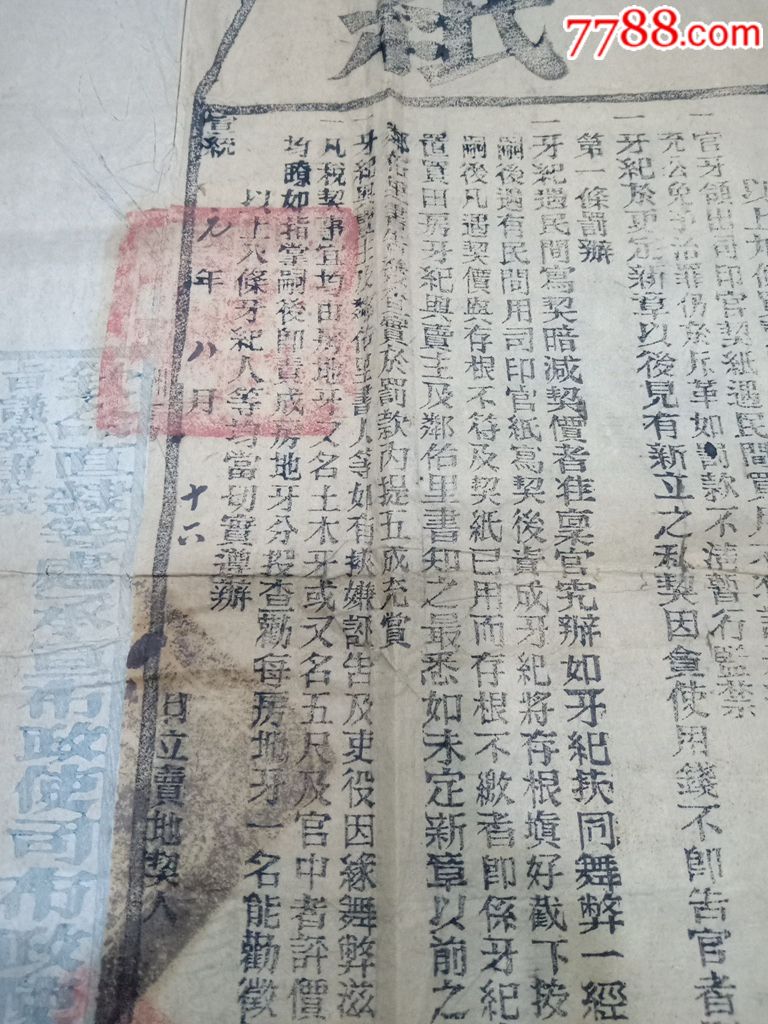 7788.com
紙
以上如
一官牙領出司印官契紙遇民間買
充公免予治罪仍斥革如罰款不清暫行監禁
一牙紀於更定新章以後見有新立之私契因貪使用錢不即告官者
第一條罰辦
一牙紀遇民間寫契暗減契價者准稟官究辦如牙紀挾同舞弊一經
嗣後遇有民間用司印官紙寫契後責成牙紀將存根填好截下按
嗣後凡遇契價與存根不符及契紙已用而存根不繳者即係牙紀
置買田房牙紀與賣主及鄰佑里書知之最悉如未定新章以前之
賣於罰款內提五成充賞
里書人等如有挾嫌誣告及吏役因緣舞弊滋
一凡稅契事宜均由房地牙又名土木牙或又名五尺及官中者評價
均瞭如指掌嗣後即責成房地牙分投查勸每房地牙一名能勸徵
以上六條牙紀人等均當切實遵辦
宣統元年八月十六日立賣地契人
布政使司布政使